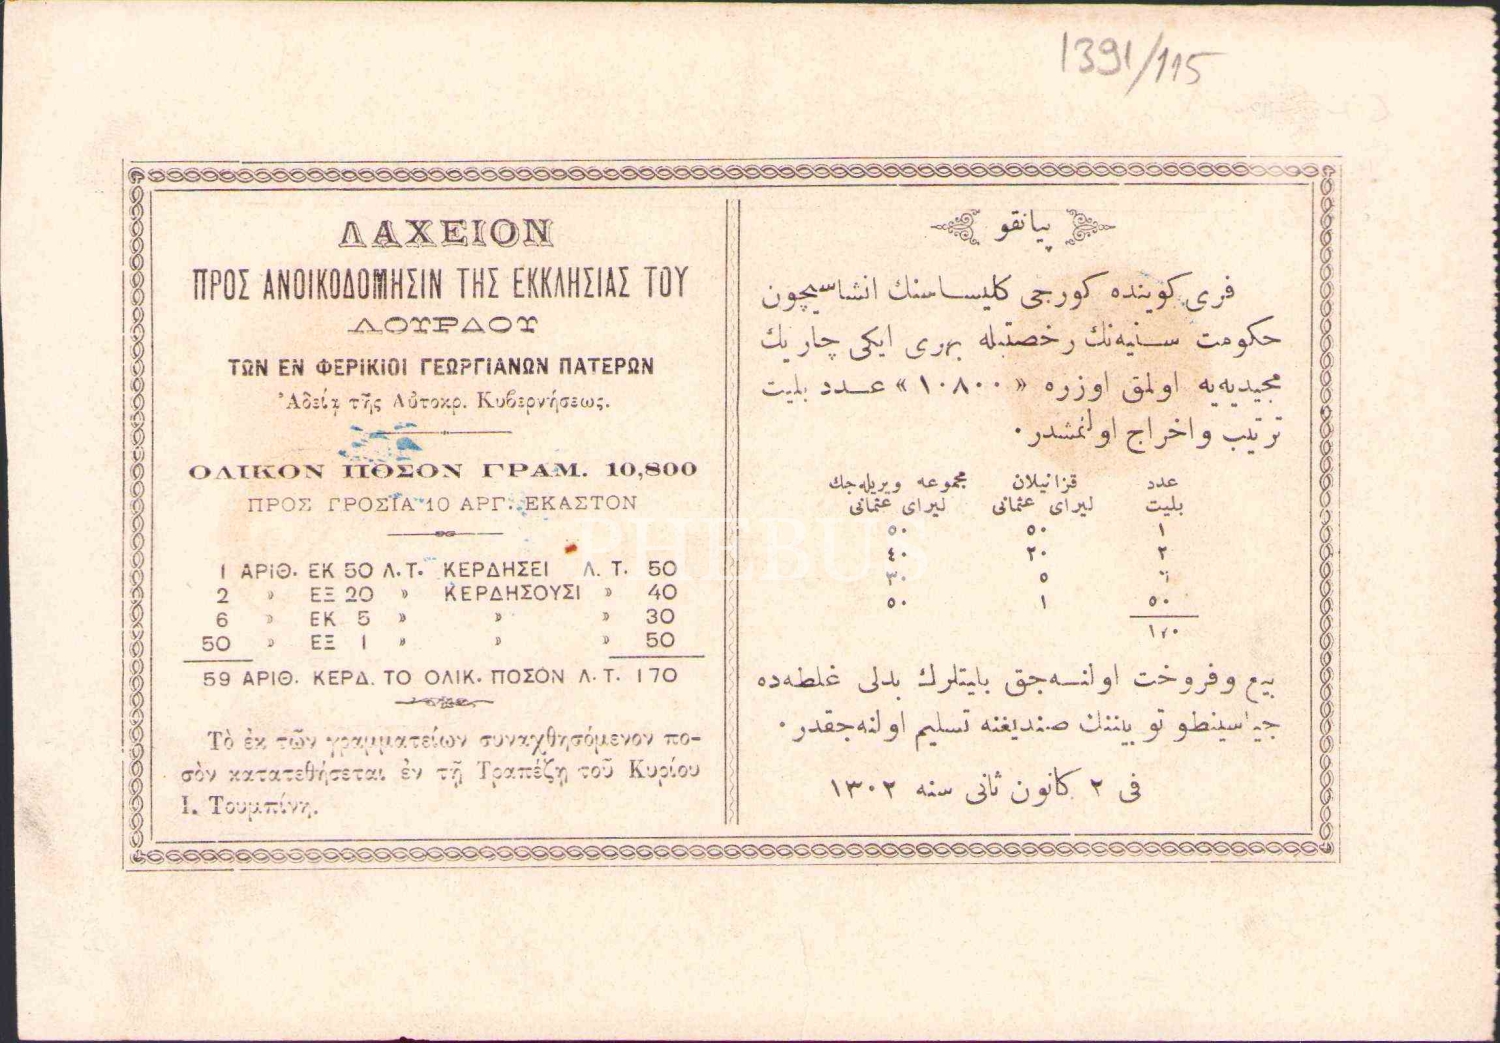 1391/115
ΛΑΧΕΙΟΝ
ΠΡΟΣ ΑΝΟΙΚΟΔΟΜΗΣΙΝ ΤΗΣ ΕΚΚΛΗΣΙΑΣ ΤΟΥ
ΛΟΥΡΔΟΥ
ΤΩΝ ΕΝ ΦΕΡΙΚΙΟΙ ΓΕΩΡΓΙΑΝΩΝ ΠΑΤΕΡΩΝ
Ἀδείᾳ τῆς Αὐτοκρ. Κυβερνήσεως.
ΟΛΙΚΟΝ ΠΟΣΟΝ ΓΡΑΜ. 10,800
ΠΡΟΣ ΓΡΟΣΙΑ 10 ΑΡΓ. ΕΚΑΣΤΟΝ
1 ΑΡΙΘ. ΕΚ 50 Λ.Τ. ΚΕΡΔΗΣΕΙ Λ. Τ. 50
2 » ΕΞ 20 » ΚΕΡΔΗΣΟΥΣΙ » 40
6 » ΕΚ 5 » » » 30
50 » ΕΞ 1 » » » 50
59 ΑΡΙΘ. ΚΕΡΔ. ΤΟ ΟΛΙΚ. ΠΟΣΟΝ Λ.Τ. 170
Τὸ ἐκ τῶν γραμματείων συναχθησόμενον πο-
σὸν κατατεθήσεται ἐν τῇ Τραπέζῃ τοῦ Κυρίου
Ι. Τουμπίνη.
پیانقو
فری کوینده کورجی کلیساسنك انشاسیچون
حکومت سنیه‌نك رخصتیله بهری ایکی چاریك
مجیدیه‌یه اولمق اوزره «١٠٨٠٠» عدد بلیت
ترتیب واخراج اولنمشدر.
عدد قزانیلان مجموعه ویریله‌جك
بلیت لیرای عثمانی لیرای عثمانی
١ ٥٠ ٥٠
٢ ٢٠ ٤٠
٦ ٥ ٣٠
٥٠ ١ ٥٠
١٧٠
بیع وفروخت اولنه‌جق بلیتلرك بدلی غلطه‌ده
جیاسینطو توبیننك صندیغنه تسلیم اولنه‌جقدر.
فی ٢ کانون ثانی سنه ١٣٠٢
PHEBUS